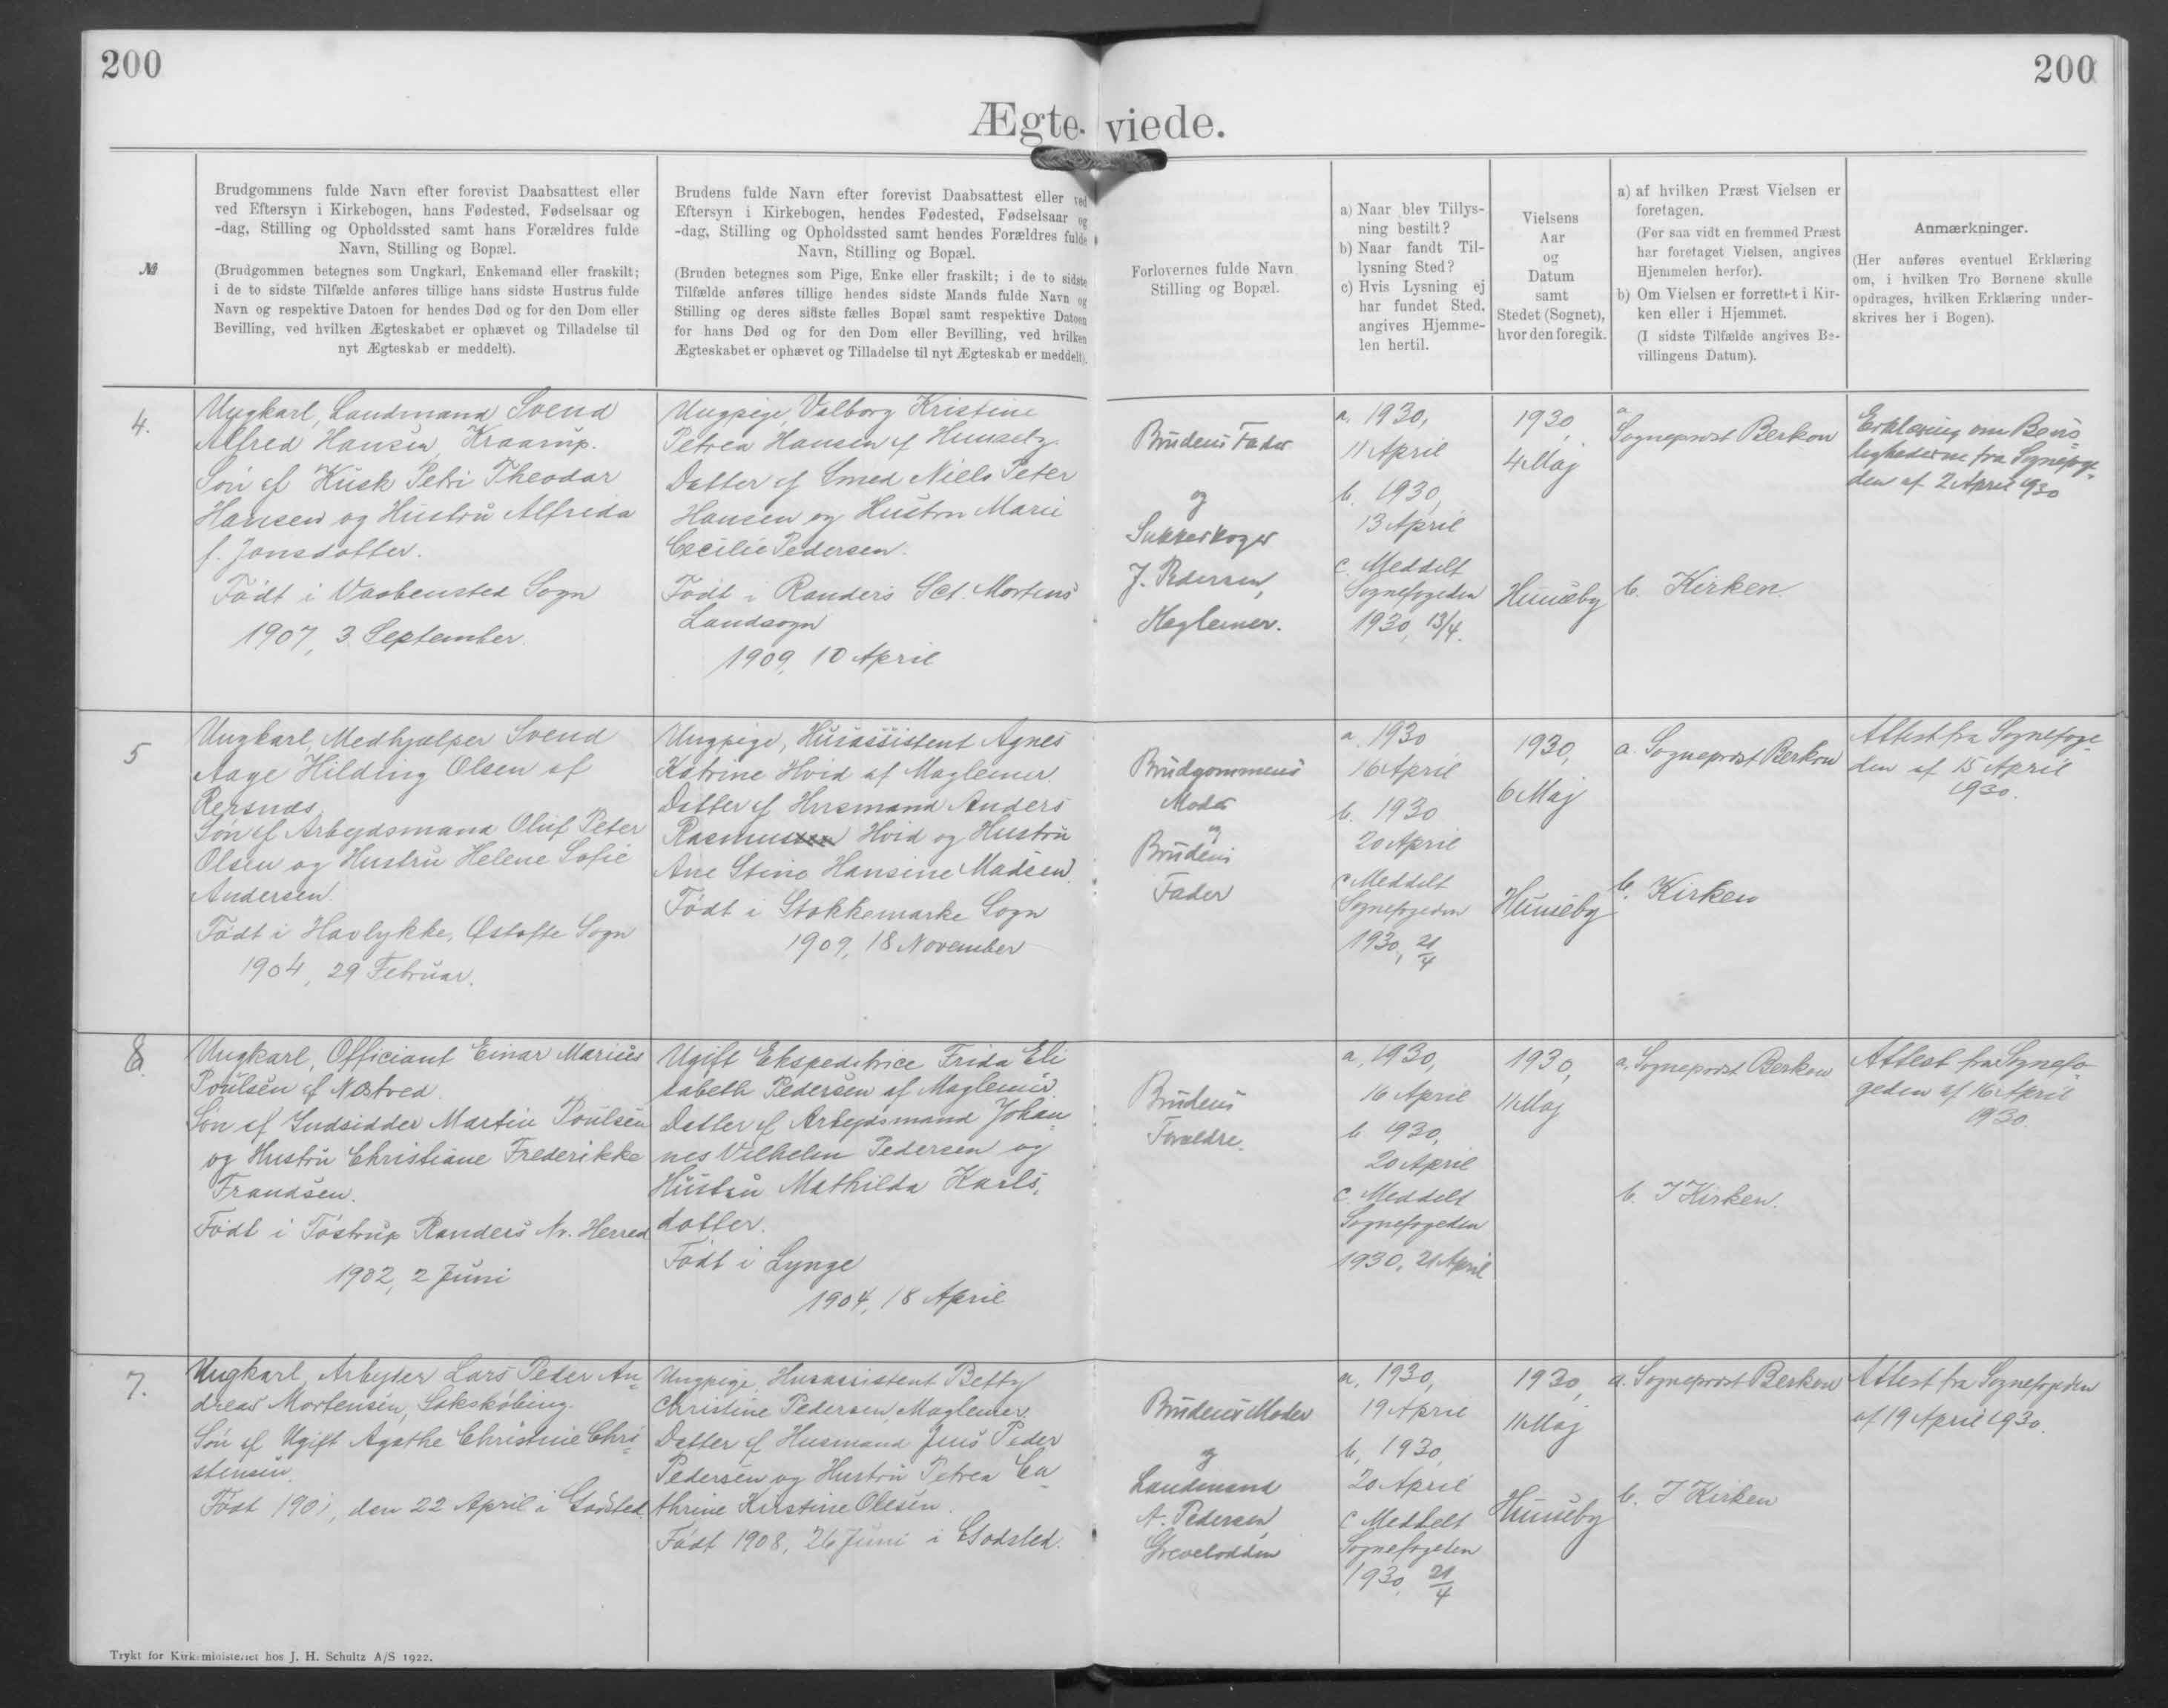 200
200
Ægte- viede.
№
Brudgommens fulde Navn efter forevist Daabsattest eller
ved Eftersyn i Kirkebogen, hans Fødested, Fødselsaar og
-dag, Stilling og Opholdssted samt hans Forældres fulde
Navn, Stilling og Bopæl.
(Brudgommen betegnes som Ungkarl, Enkemand eller fraskilt;
i de to sidste Tilfælde anføres tillige hans sidste Hustrus fulde
Navn og respektive Datoen for hendes Død og for den Dom eller
Bevilling, ved hvilken Ægteskabet er ophævet og Tilladelse til
nyt Ægteskab er meddelt).
Brudens fulde Navn efter forevist Daabsattest eller ved
Eftersyn i Kirkebogen, hendes Fødested, Fødselsaar og
-dag, Stilling og Opholdssted samt hendes Forældres fulde
Navn, Stilling og Bopæl.
(Bruden betegnes som Pige, Enke eller fraskilt; i de to sidste
Tilfælde anføres tillige hendes sidste Mands fulde Navn og
Stilling og deres sidste fælles Bopæl samt respektive Datoen
for hans Død og for den Dom eller Bevilling, ved hvilken
Ægteskabet er ophævet og Tilladelse til nyt Ægteskab er meddelt).
Forlovernes fulde Navn
Stilling og Bopæl.
a) Naar blev Tillys-
ning bestilt?
b) Naar fandt Til-
lysning Sted?
c) Hvis Lysning ej
har fundet Sted,
angives Hjemme-
len hertil.
Vielsens
Aar
og
Datum
samt
Stedet (Sognet),
hvor den foregik.
a) af hvilken Præst Vielsen er
foretagen.
(For saa vidt en fremmed Præst
har foretaget Vielsen, angives
Hjemmelen herfor).
b) Om Vielsen er forrettet i Kir-
ken eller i Hjemmet.
(I sidste Tilfælde angives Be-
villingens Datum).
Anmærkninger.
(Her anføres eventuel Erklæring
om, i hvilken Tro Børnene skulle
opdrages, hvilken Erklæring under-
skrives her i Bogen).
4.
Ungkarl, Landmand Svend
Alfred Hansen, Kraarup.
Søn af Kusk Petri Theodor
Hansen og Hustru Alfrida
f. Jonsdotter.
Født i Vaabensted Sogn
1907, 3 September.
Ungpige, Valborg Kristine
Petrea Hansen af
Datter af Smed Niels Peter
Hansen og Hustru Marie
Cecilie Pedersen.
Født i Randers Sct. Mortens
Landsogn
1909, 10 April
Brudens Fader
og
Sukkerkoger
J. Pedersen,
Maglemer.
a. 1930,
11 April
b. 1930,
13 April
c. Meddelt
Sognefogeden
1930, 13/4.
1930,
4 Maj
Hunseby
a.
Sogneprovst Berkow
b. Kirken.
Erklæring om
fra Sognefoge-
den af 2 April 1930
5
Ungkarl, Medhjælper Svend
Aage Hilding Olsen af
Reersnæs
Søn af Arbejdsmand Oluf Peter
Olsen og Hustru Helene Sofie
Andersen.
Født i Havlykke, Østofte Sogn
1904, 29 Februar.
Ungpige, Husassistent Agnes
Katrine Hvid af Maglemer.
Datter af Husmand Anders
Rasmussen Hvid og Hustru
Ane Stine Hansine Madsen.
Født i Stokkemarke Sogn
1909, 18 November
Brudgommens
Moder
og
Brudens
Fader
a. 1930
16 April
b. 1930
20 April
c. Meddelt
Sognefogeden
1930, 21/4
1930,
6 Maj
Hunseby
a. Sogneprovst Berkow
b. Kirken
Attest fra Sognefoge-
den af 15 April
1930.
6.
Ungkarl, Officiant Einar Marius
Poulsen af Næstved.
Søn af Indsidder Martin Poulsen
og Hustru Christiane Frederikke
Frandsen.
Født i Tøstrup Randers Nr. Herred
1902, 2 Juni
Ugift Ekspeditrice Frida Eli
sabeth Pedersen af Maglemer.
Datter af Arbejdsmand Johan-
nes Vilhelm Pedersen og
Hustru Mathilda Karls-
dotter.
Født i Lynge
1904, 18 April
Brudens
Forældre.
a. 1930,
16 April
b. 1930,
20 April
c. Meddelt
Sognefogeden
1930, 21 April
1930,
11 Maj
a. Sogneprovst Berkow
b. I Kirken.
Attest fra Sognefo-
geden af 16 April
1930.
7.
Ungkarl, Arbejder Lars Peder An-
dreas Mortensen, Sakskøbing.
Søn af Ugift Agathe Christine Chri-
stensen.
Født 1901, den 22 April i Godsted.
Ungpige, Husassistent Betty
Christine Pedersen, Maglemer.
Datter af Husmand Jens Peder
Pedersen og Hustru Petrea Ca-
thrine Kirstine Olesen.
Født 1908, 26 Juni i Godsted.
Brudens Moder
og
Landmand
A. Pedersen,
Grevelodden
a. 1930,
19 April
b. 1930,
20 April
c. Meddelt
Sognefogeden
1930, 21/4
1930,
11 Maj
Hunseby
a. Sogneprovst Berkow
b. I Kirken
Attest fra Sognefogeden
af 19 April 1930.
Trykt for Kirkeministeriet hos J. H. Schultz A/S 1922.